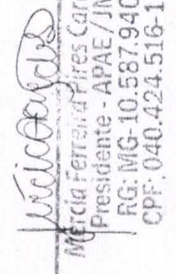 Márcia Ferreira Pires Car
Presidente - APAE/JM
RG: MG-10.587.940
CPF: 040.424.516-1